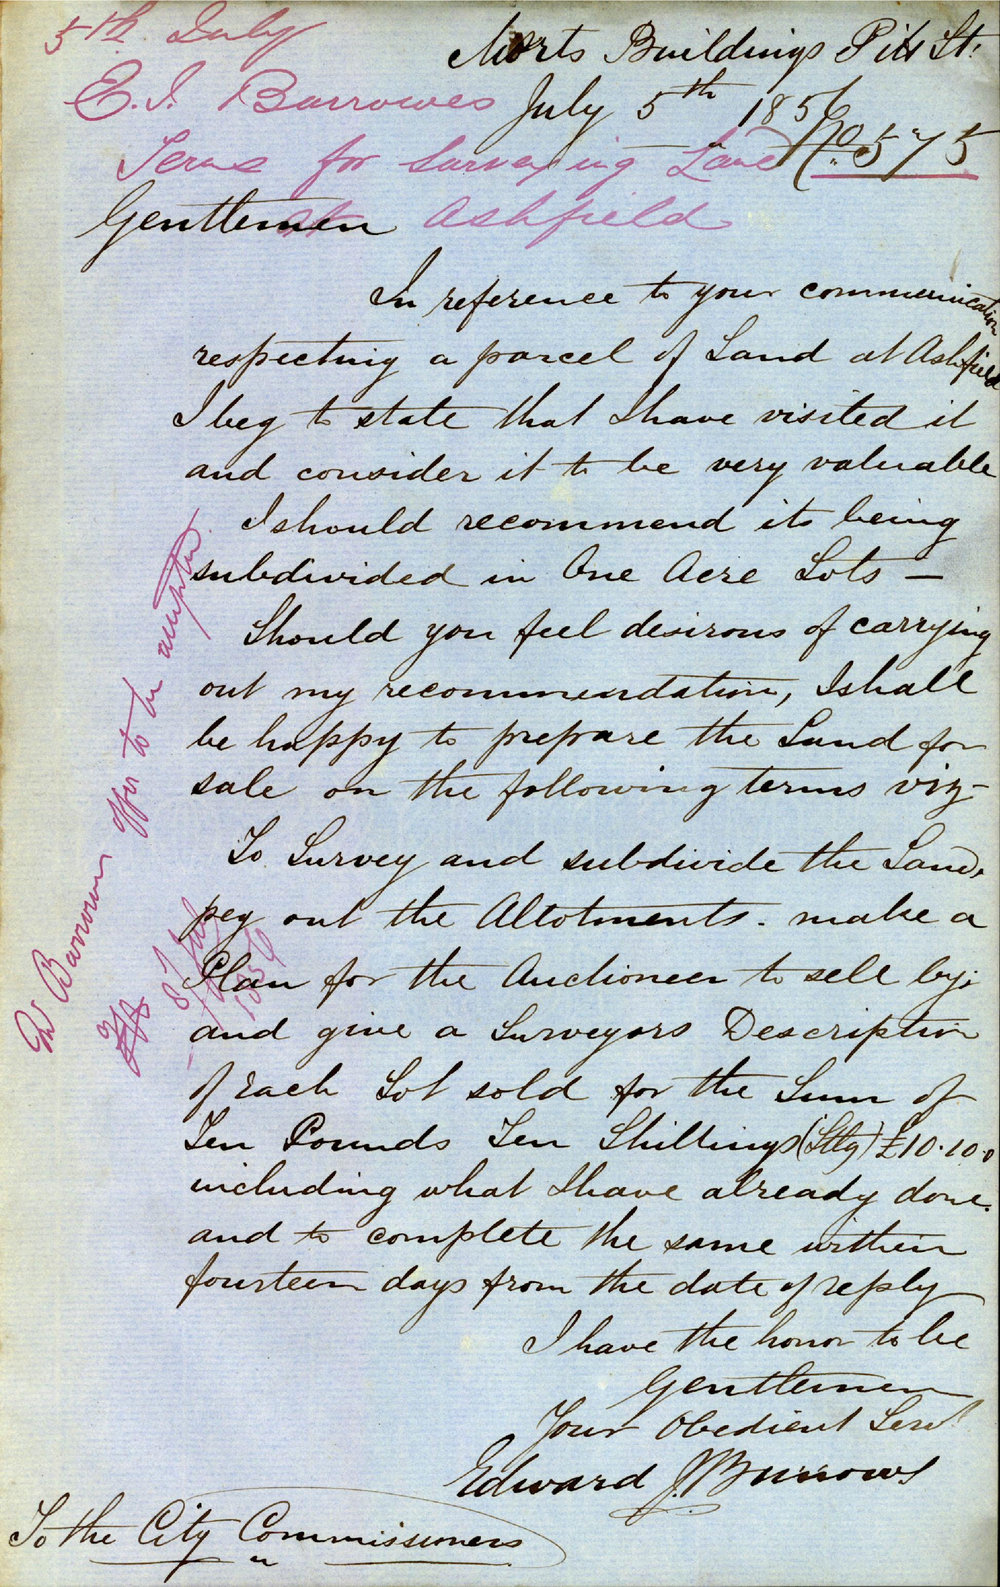 5th July
E. J. Burrowes
Terms for Surveying Land
at Ashfield
Morts Buildings Pitt St.
July 5th 1856
No. 575
Gentlemen
In reference to your communication
respecting a parcel of Land at Ashfield
I beg to state that I have visited it
and consider it to be very valuable
I should recommend its being
subdivided in One Acre Lots —
Should you feel desirous of carrying
out my recommendation, I shall
be happy to prepare the Land for
sale on the following terms viz-
To Survey and subdivide the Land,
peg out the Allotments. make a
Plan for the Auctioneer to sell by;
and give a Surveyors Description
of each Lot sold for the Sum of
Ten Pounds Ten Shillings (Stlg) £10.10.0
including what I have already done.
and to complete the same within
fourteen days from the date of reply
I have the honor to be
Gentlemen
Your Obedient Servt
Edward J. Burrows
To the City Commissioners
Mr Burrows offer to be accepted
8 July
1856